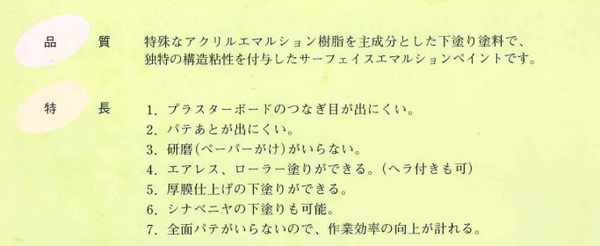 品質 特殊なアクリルエマルション樹脂を主成分とした下塗り塗料で、
独特の構造粘性を付与したサーフェイスエマルションペイントです。
特長 1. プラスターボードのつなぎ目が出にくい。
2. パテあとが出にくい。
3. 研磨(ペーパーがけ)がいらない。
4. エアレス、ローラー塗りができる。(ヘラ付きも可)
5. 厚膜仕上げの下塗りができる。
6. シナベニヤの下塗りも可能。
7. 全面パテがいらないので、作業効率の向上が計れる。